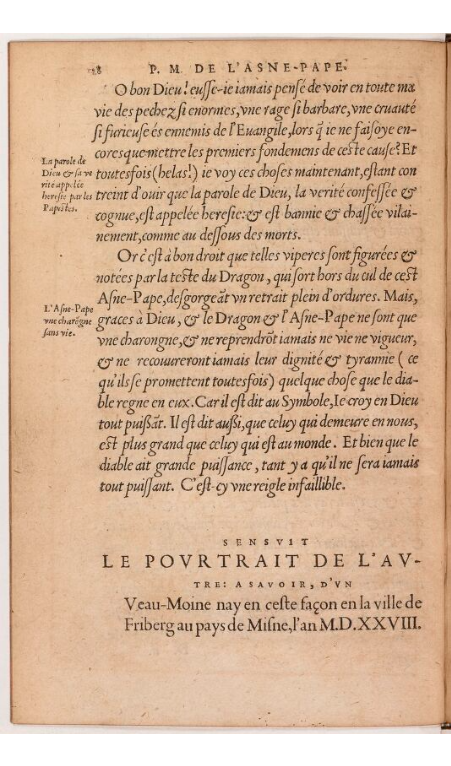 P. M. DE L'ASNE-PAPE.
O bon Dieu! eusse-ie iamais pensé de voir en toute ma
vie des pechez si enormes, vne rage si barbare, vne cruauté
si furieuse és ennemis de l'Euangile, lors q̃ ie ne faisoye en-
cores que mettre les premiers fondemens de ceste cause? Et
toutesfois (helas!) ie voy ces choses maintenant, estant con
treint d'ouir que la parole de Dieu, la verité confessée &
cognue, est appelée heresie: & est bannie & chassée vilai-
nement, comme au dessous des morts.
La parole de
Dieu & sa ve
rité appelée
heresie par les
Papistes.
Or c'est à bon droit que telles viperes sont figurées &
notées par la teste du Dragon, qui sort hors du cul de cest
Asne-Pape, desgorgeãt vn retrait plein d'ordures. Mais,
graces à Dieu, & le Dragon & l'Asne-Pape ne sont que
vne charongne, & ne reprendrõt iamais ne vie ne vigueur,
& ne recouureront iamais leur dignité & tyrannie (ce
qu'ils se promettent toutesfois) quelque chose que le dia-
ble regne en eux. Car il est dit au Symbole, Ie croy en Dieu
tout puissãt. Il est dit aussi, que celuy qui demeure en nous,
est plus grand que celuy qui est au monde. Et bien que le
diable ait grande puissance, tant y a qu'il ne sera iamais
tout puissant. C'est-cy vne reigle infaillible.
L'Asne-Pape
vne charõgne
sans vie.
SENSVIT
LE POVRTRAIT DE L'AV-
TRE: A SAVOIR, D'VN
Veau-Moine nay en ceste façon en la ville de
Friberg au pays de Misne, l'an M.D.XXVIII.